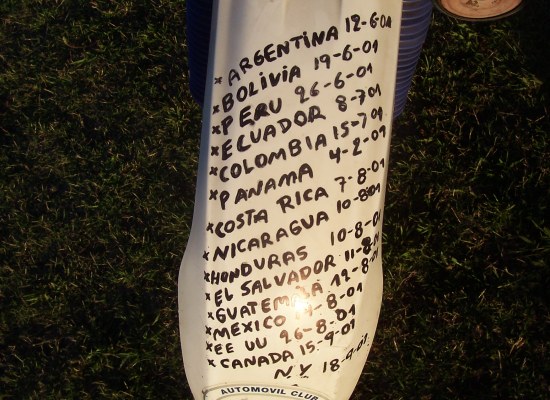 x ARGENTINA 12-6-01
x BOLIVIA 19-6-01
x PERU 26-6-01
x ECUADOR 8-701
x COLOMBIA 15-701
x PANAMA 4-2-01
x COSTA RICA 7-8-01
x NICARAGUA 10-8-01
x HONDURAS 10-8-01
x EL SALVADOR 11-8-01
x GUATEMALA 12-8-01
x MEXICO 14-8-01
x EE UU 26-8-01
x CANADA 15-9-01
N.Y 18-9-01
AUTOMOVIL CLUB